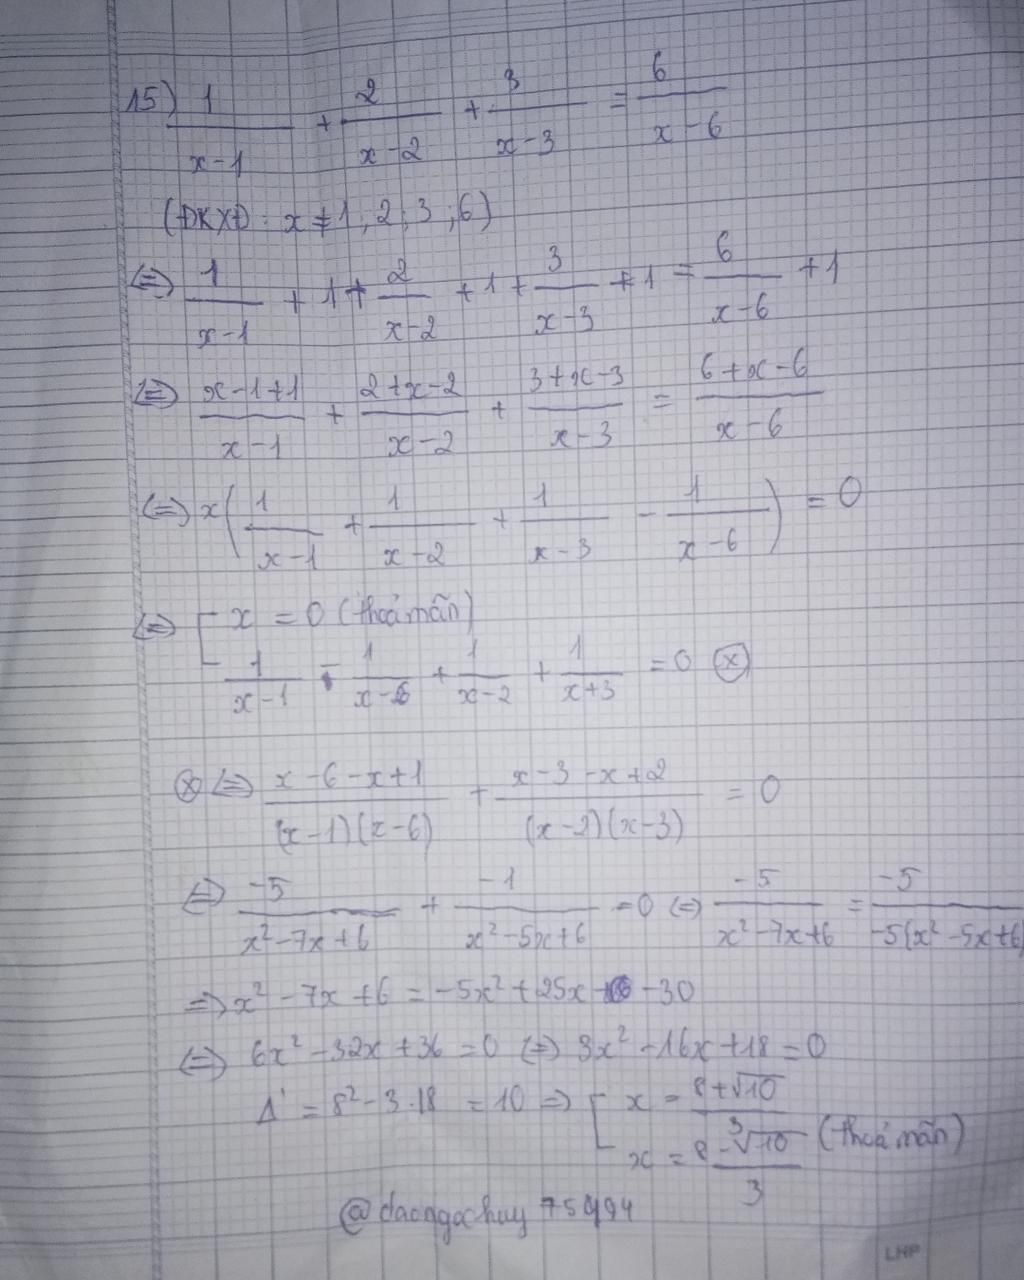 15) 1/(x-1) + 2/(x-2) + 3/(x-3) = 6/(x-6)
(ĐKXĐ: x ≠ 1, 2, 3; 6)
(=) 1/(x-1) + 1 + 2/(x-2) + 1 + 3/(x-3) + 1 = 6/(x-6) + 1
(=) (x-1+1)/(x-1) + (2+x-2)/(x-2) + (3+x-3)/(x-3) = (6+x-6)/(x-6)
(=) x(1/(x-1) + 1/(x-2) + 1/(x-3) - 1/(x-6)) = 0
(=) [ x = 0 (thoả mãn)
1/(x-1) - 1/(x-6) + 1/(x-2) + 1/(x+3) = 0 (x)
(x) (=) (x-6-x+1)/((x-1)(x-6)) + (x-3-x+2)/((x-2)(x-3)) = 0
(=) -5/(x²-7x+6) + -1/(x²-5x+6) = 0 (=) -5/(x²-7x+6) = -5/(-5(x²-5x+6)
=> x² - 7x + 6 = -5x² + 25x - 30
(=) 6x² - 32x + 36 = 0 (=) 3x² - 16x + 18 = 0
Δ' = 8² - 3.18 = 10 => [ x = (8+√10)/3
x = (8-√10)/3 (thoả mãn)
@daongochuy
LHP